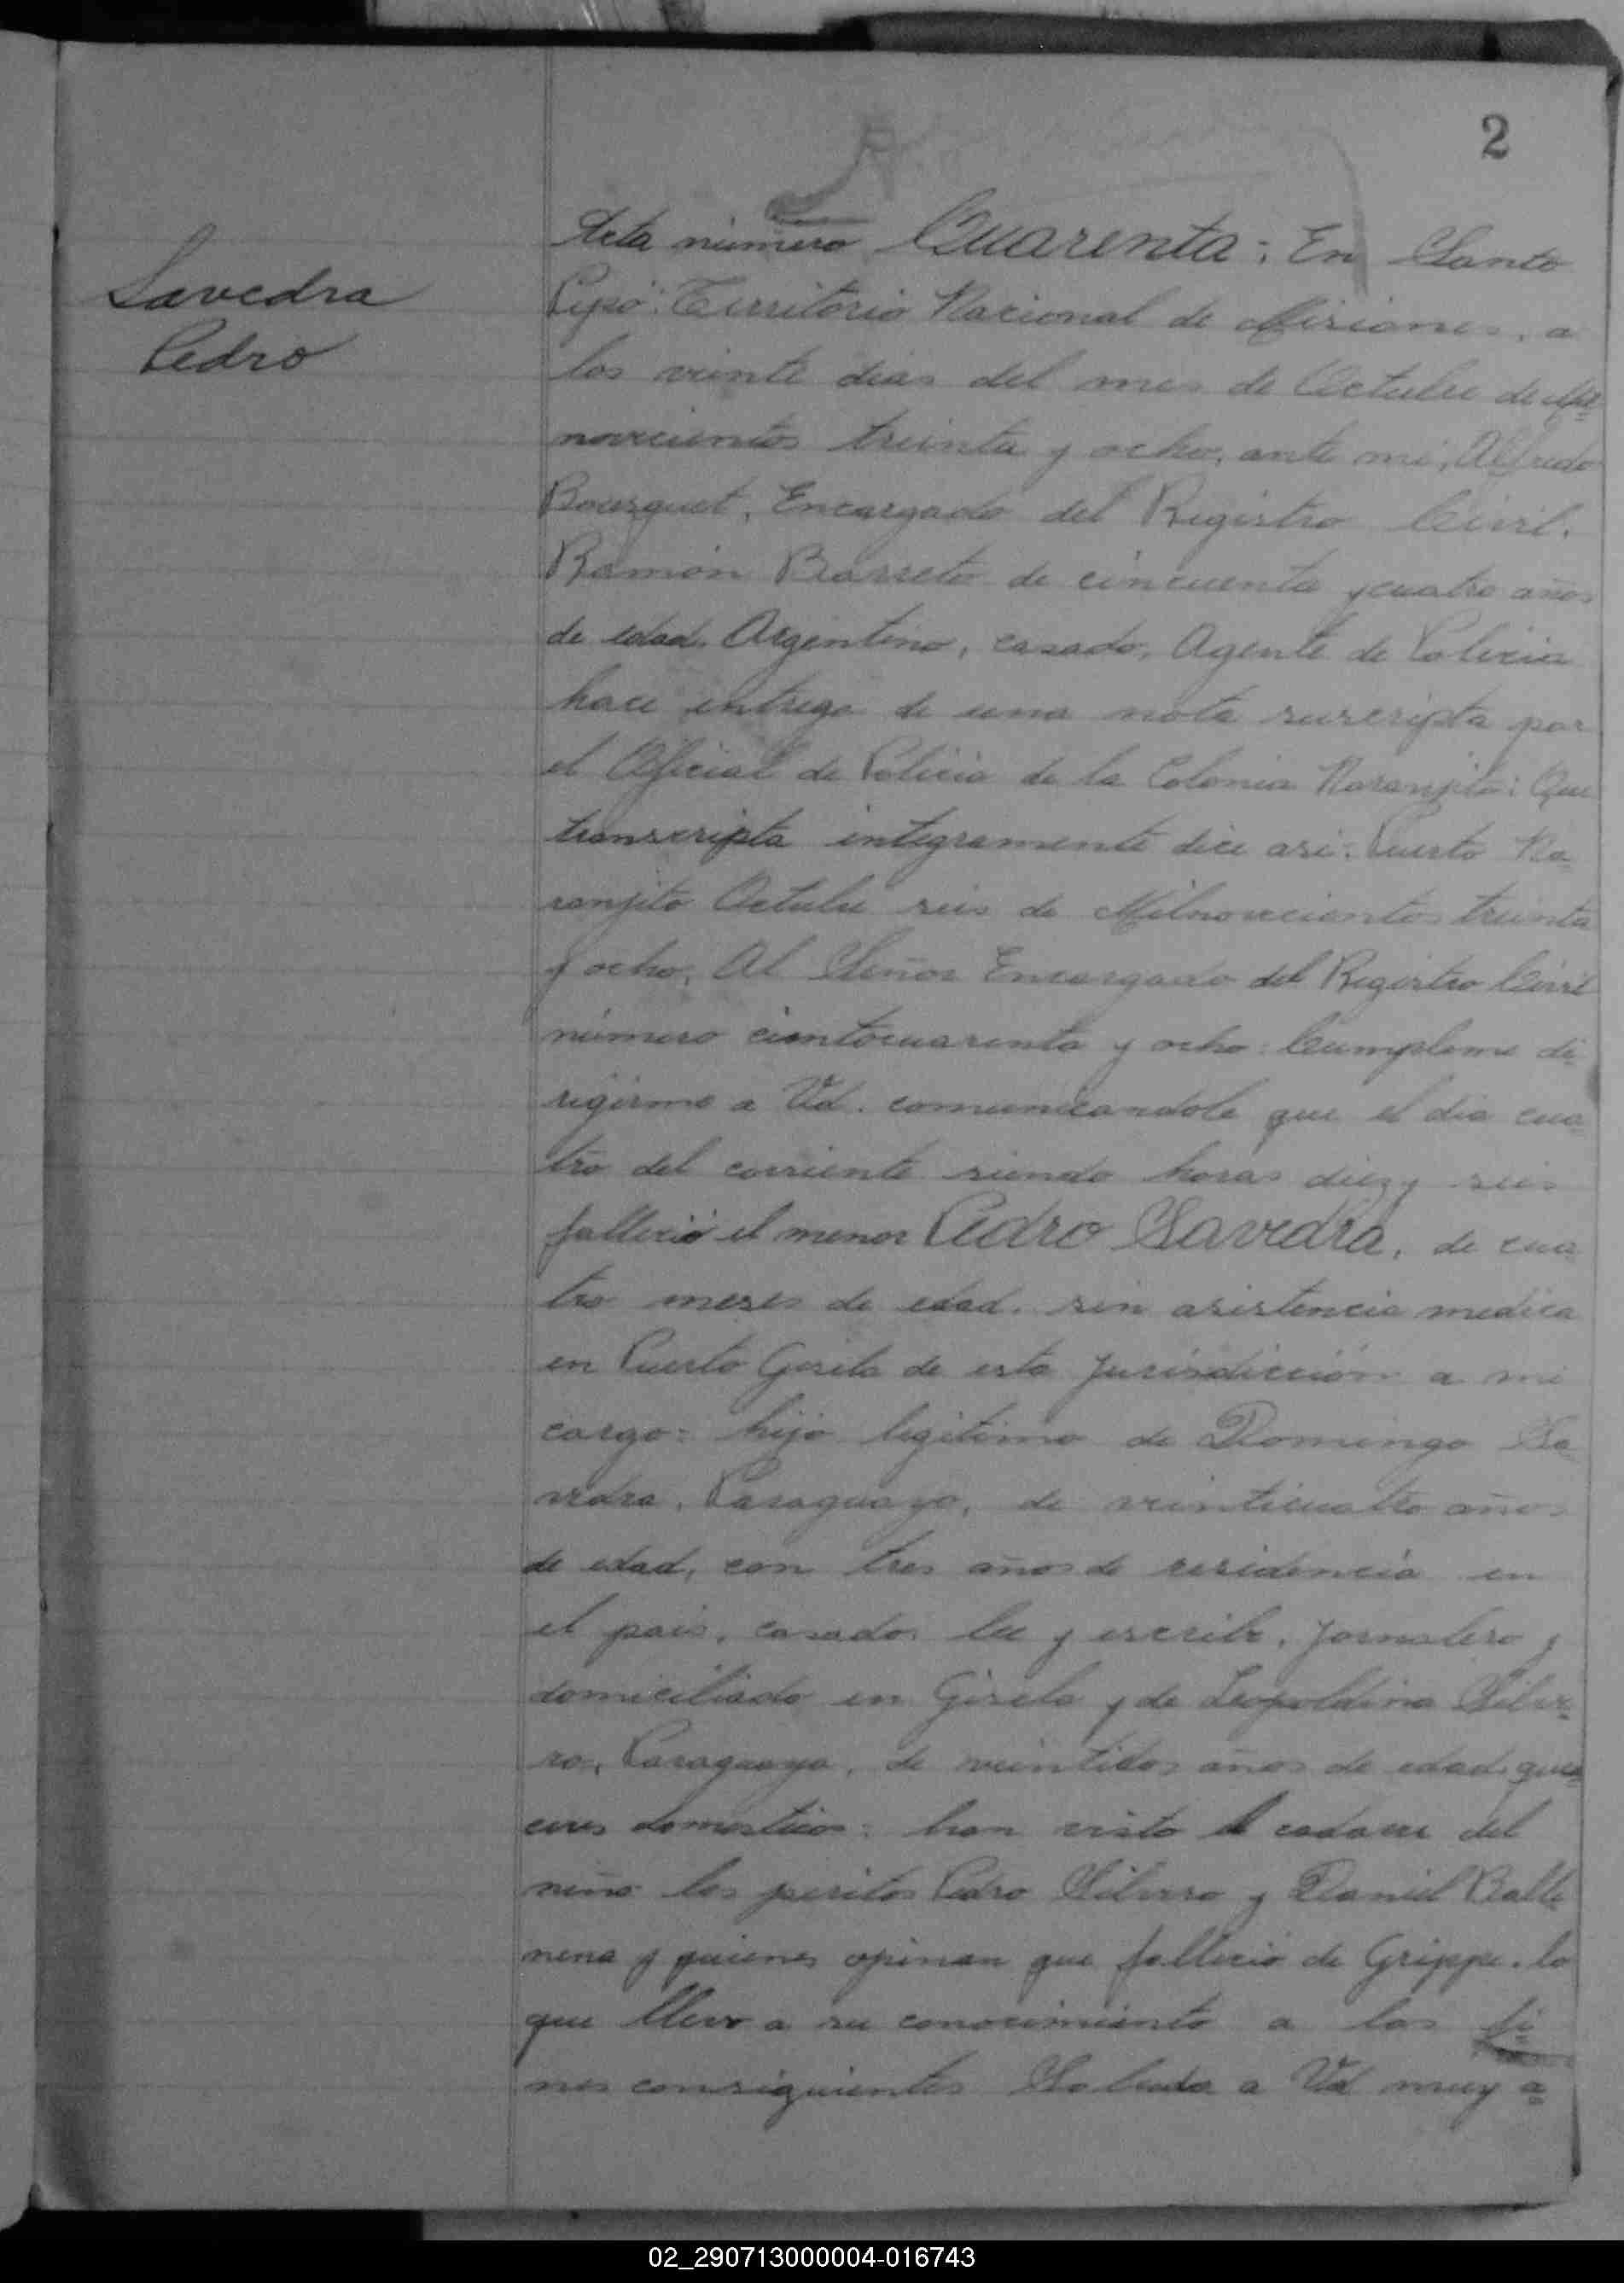 2
Savedra
Pedro
Acta número Cuarenta: En Santo
Pipó: Territorio Nacional de Misiones, a
los veinte dias del mes de Octubre de Mil
novecientos treinta y ocho, ante mi, Alfredo
Bourquet, Encargado del Registro Civil.
Ramón Barreto de cincuenta y cuatro años
de edad. Argentino, casado, Agente de Policia
hace entrega de una nota suscripta por
el Oficial de Policia de la Colonia Naranjito: Que
transcripta integramente dice asi. Puerto Na=
ranjito Octubre seis de Milnovecientos treinta
y ocho, Al Señor Encargado del Registro Civil
número cientocuarenta y ocho: Cumpleme di=
rigirme a Vd. comunicandole que el dia cua=
tro del corriente siendo horas diez y seis
falleció el menor Pedro Savedra, de cua=
tro meses de edad. sin asistencia medica
en Puerto Gisela de esta Jurisdicción a mi
cargo= hijo legitimo de Domingo Sa=
vedra, Paraguayo, de veinticuatro años
de edad, con tres años de residencia en
el pais, casado, lee y escribe, jornalero y
domiciliado en Gisela y de Leopoldina Silve=
ro, Paraguaya, de veintidos años de edad, que=
ceres domesticos: han visto el cadaver del
niño los peritos Pedro Silvero y Daniel Balle
nena y quienes opinan que falleció de Grippe. lo
que llevo a su conocimiento a los fi=
nes consiguientes Saluda a Vd muy a=
02_290713000004-016743